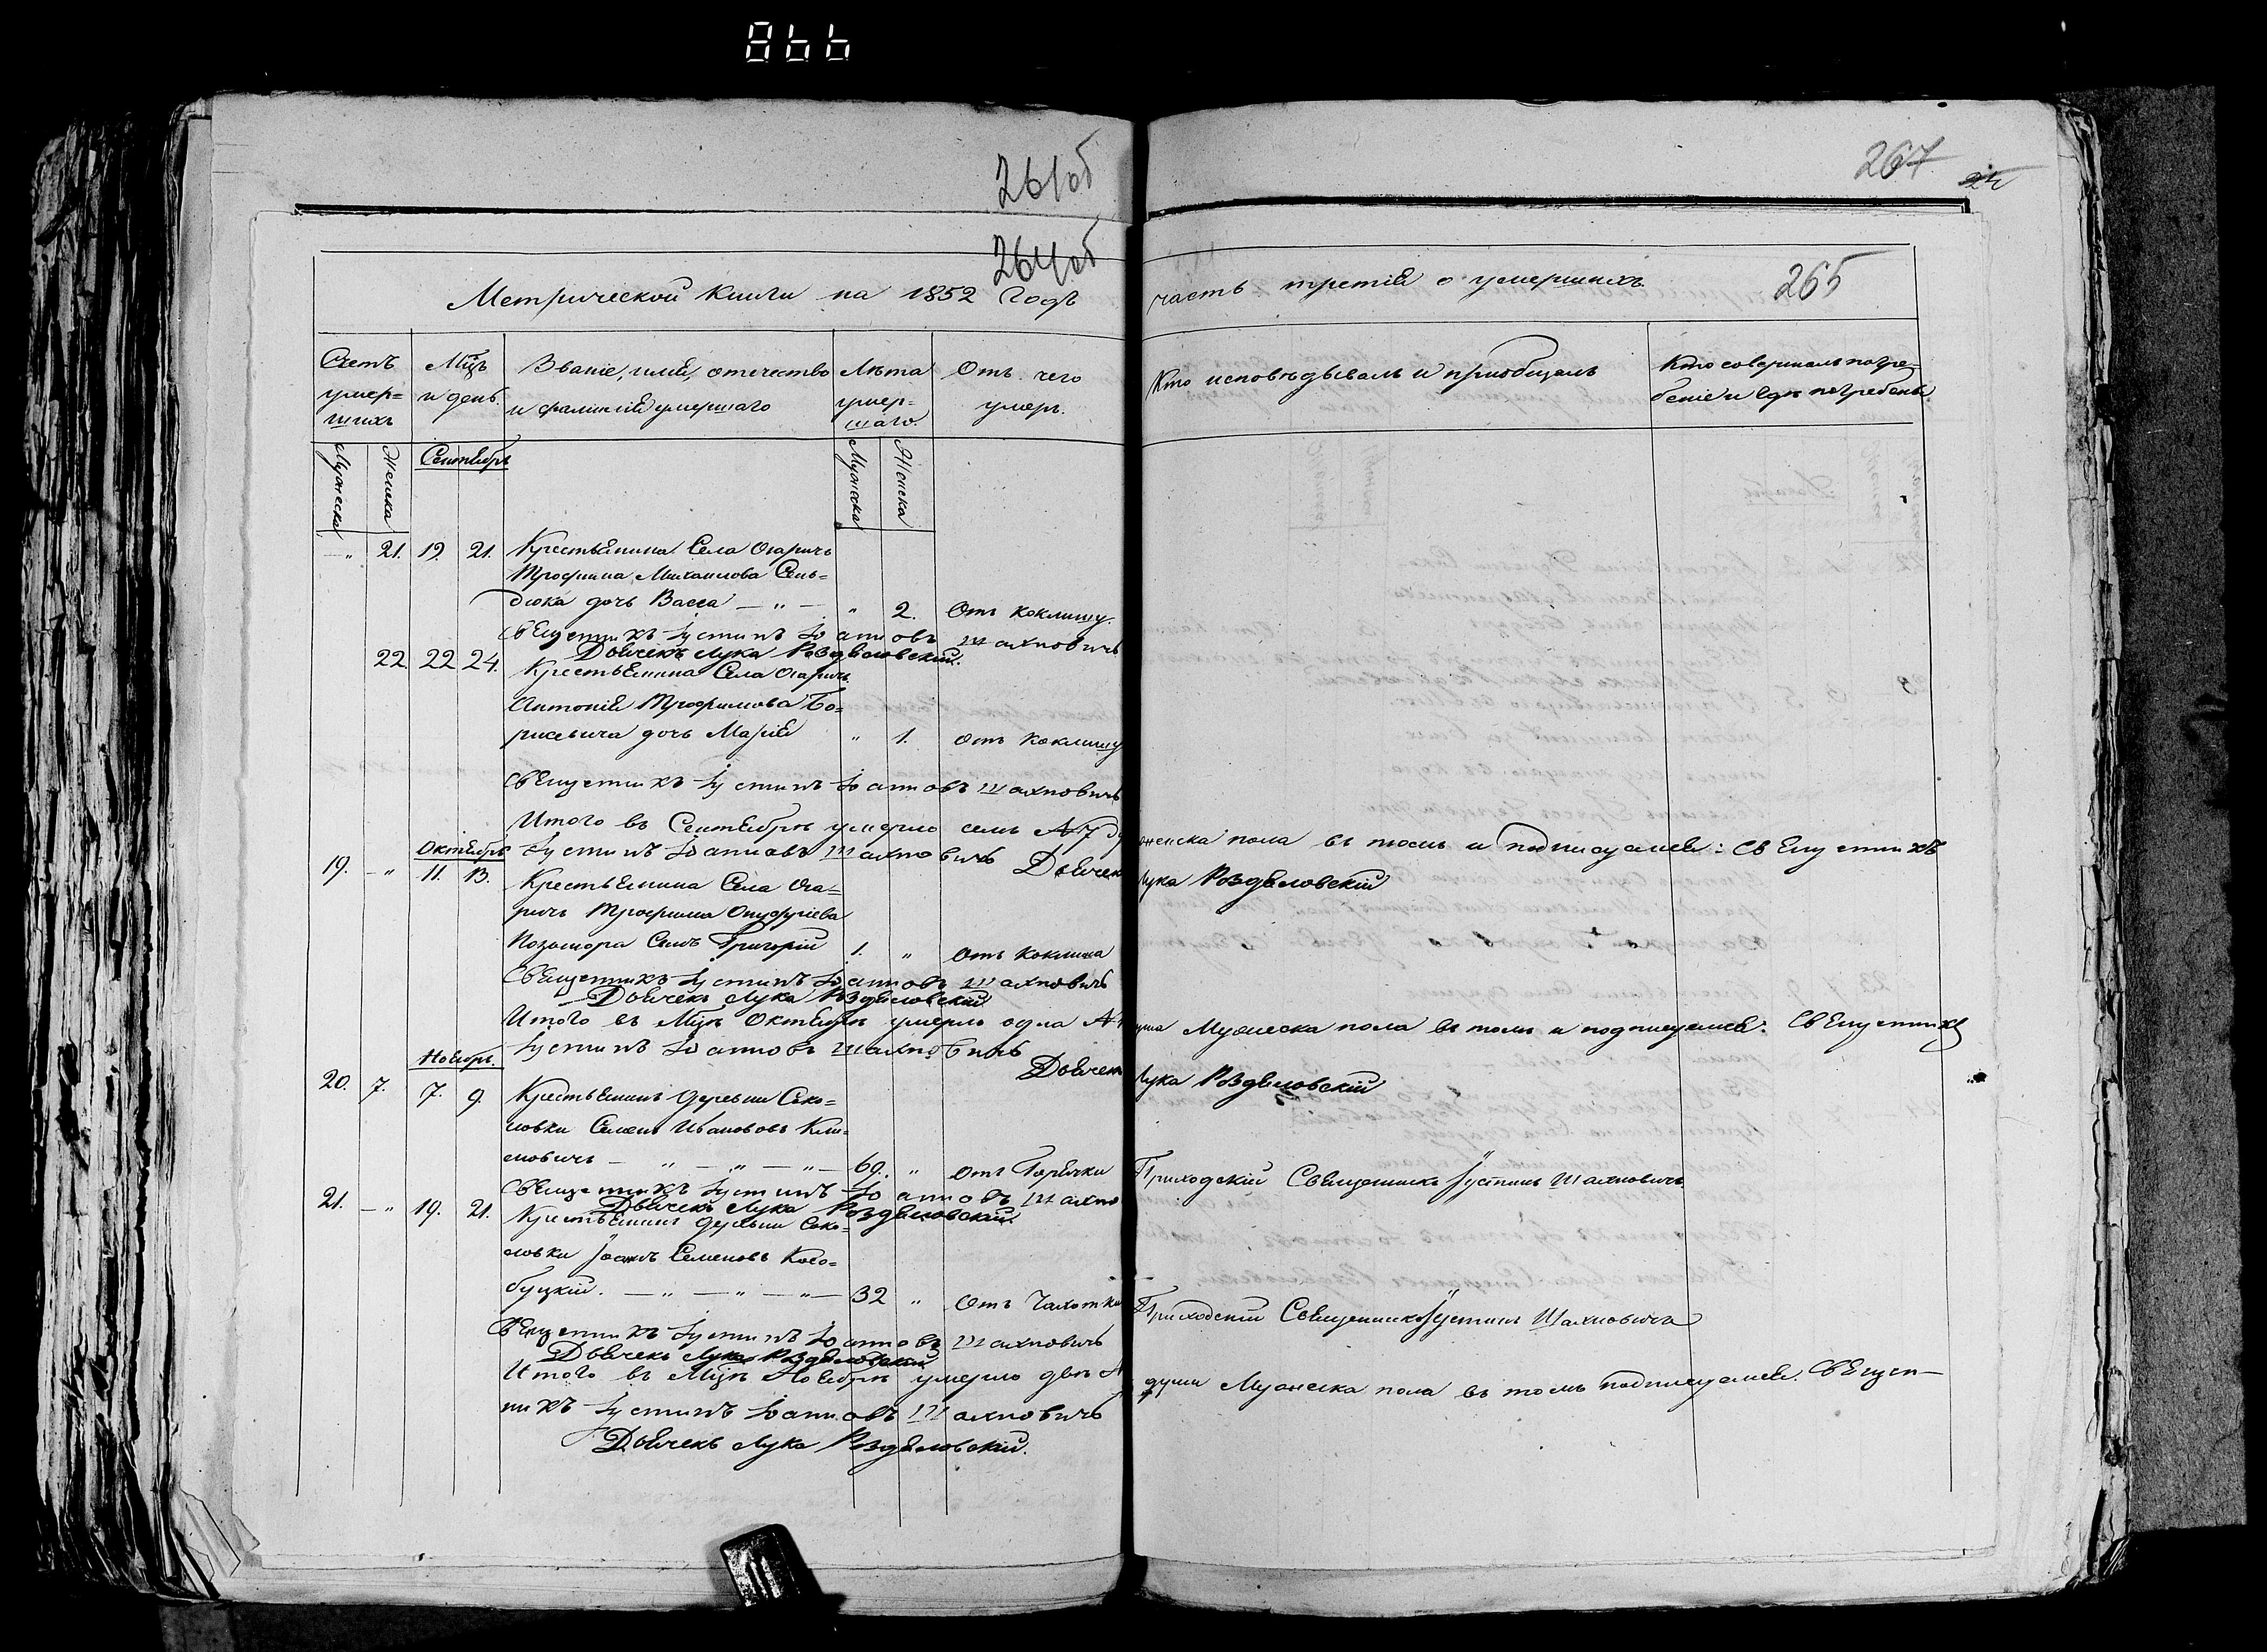 866
261об
267
24
264об
265
Метрической Книги на 1852 Годъ
часть третія о умершихъ
Счетъ умер= шихъ
Мцъ и день.
Званіе, имя, отчество и фамилія умершаго
Лѣта умер= шаго.
Отъ чего умеръ.
Кто исповѣдывалъ и пріобщалъ
Кто совершалъ погре= беніе и гдѣ погребены
Мужеска
Женска
Сентябрь
Мужеска
Женска
— " 21. 19. 21. Крестьянина Села Огаричъ
Трофима Михаилова Сень=
дюка дочь Васса — " — " 2. Отъ коклишу.
Священникъ Іустинъ Іоанновъ Шахновичъ
Дьячекъ Лука Роздяловскій.
22 22 24. Крестьянина Села Огаричъ
Антонія Трофимова Бо=
рисевича дочь Марія " 1. отъ коклишу
Священникъ Іустинъ Іоанновъ Шахновичъ
Итого въ Сентябрѣ умерло семь № 7 женска пола въ томъ и подписуемся: Священникъ
Іустинъ Іоанновъ Шахновичъ Дьячекъ Лука Роздяловскій
Октябрь
19. — " 11. 13. Крестьянина Села Ога=
ричъ Трофима Онуфріева
Сынъ Григорій 1. " Отъ коклиша
Священникъ Іустинъ Іоанновъ Шахновичъ
Дьячекъ Лука Роздяловскій
Итого въ Мцѣ Октябрѣ умерла одна душа Мужеска пола въ томъ и подписуемся: Священникъ
Іустинъ Іоанновъ Шахновичъ
Дьячекъ Лука Роздяловскій
Ноябрь.
20. 7. 7. 9. Крестьянинъ деревни Соко=
ловки Семенъ Ивановъ Кли=
мовичъ — " — " — " — 69. " отъ Горячки Приходскій Священникъ Іустинъ Шахновичъ
Священникъ Іустинъ Іоанновъ Шахно
Дьячекъ Лука Роздяловскій.
21. — " 19. 21. Крестьянинъ деревни Соко=
ловки Іоаннъ Семеновъ Косо=
буцкій. — " — " — " — 32 " Отъ Чахотки Приходскій Священникъ Іустинъ Шахновичъ
Священникъ Іустинъ Іоанновъ Шахновичъ
Дьячекъ Лука Роздяловскій
Итого въ Мцѣ Ноябрѣ умерло двѣ души Мужеска пола въ томъ подписуемся. Священ—
никъ Іустинъ Іоанновъ Шахновичъ
Дьячекъ Лука Роздяловскій.